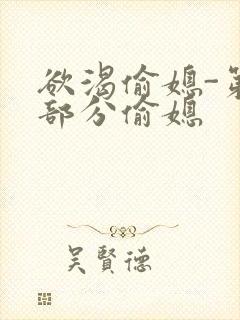 欲渴偷媳-第
部分偷媳
吴賢德